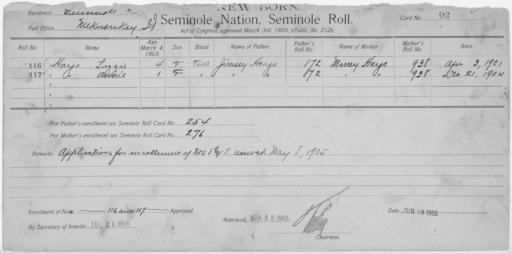 NEW BORN
Residence Seminole
Seminole Nation, Seminole Roll. Card No. 92
Post Office Wewoka
Act of Congress approved March 3rd, 1905. (Public No. 212).
Roll No. Name Age March 4, 1905. Sex Blood Name of Father Father's Roll No. Name of Mother Mother's Roll No. Born
116 Harjo Lizzie 4 F Full Jimsey Harjo 172 Missey Harjo 938 Apr 2, 1901
117 " " Annie 1 F " " " 172 " " 938 Dec 21, 1904
For Father's enrollment see Seminole Roll Card No. 254
For Mother's enrollment see Seminole Roll Card No. 276
Remarks Application for enrollment of Nos 1 & 2 received May 8, 1905
Enrollment of Nos. 116 and 117 Approved
By Secretary of Interior JUL 1905
Approved JUN 1905
Chairman.
Date JUN 19 1905